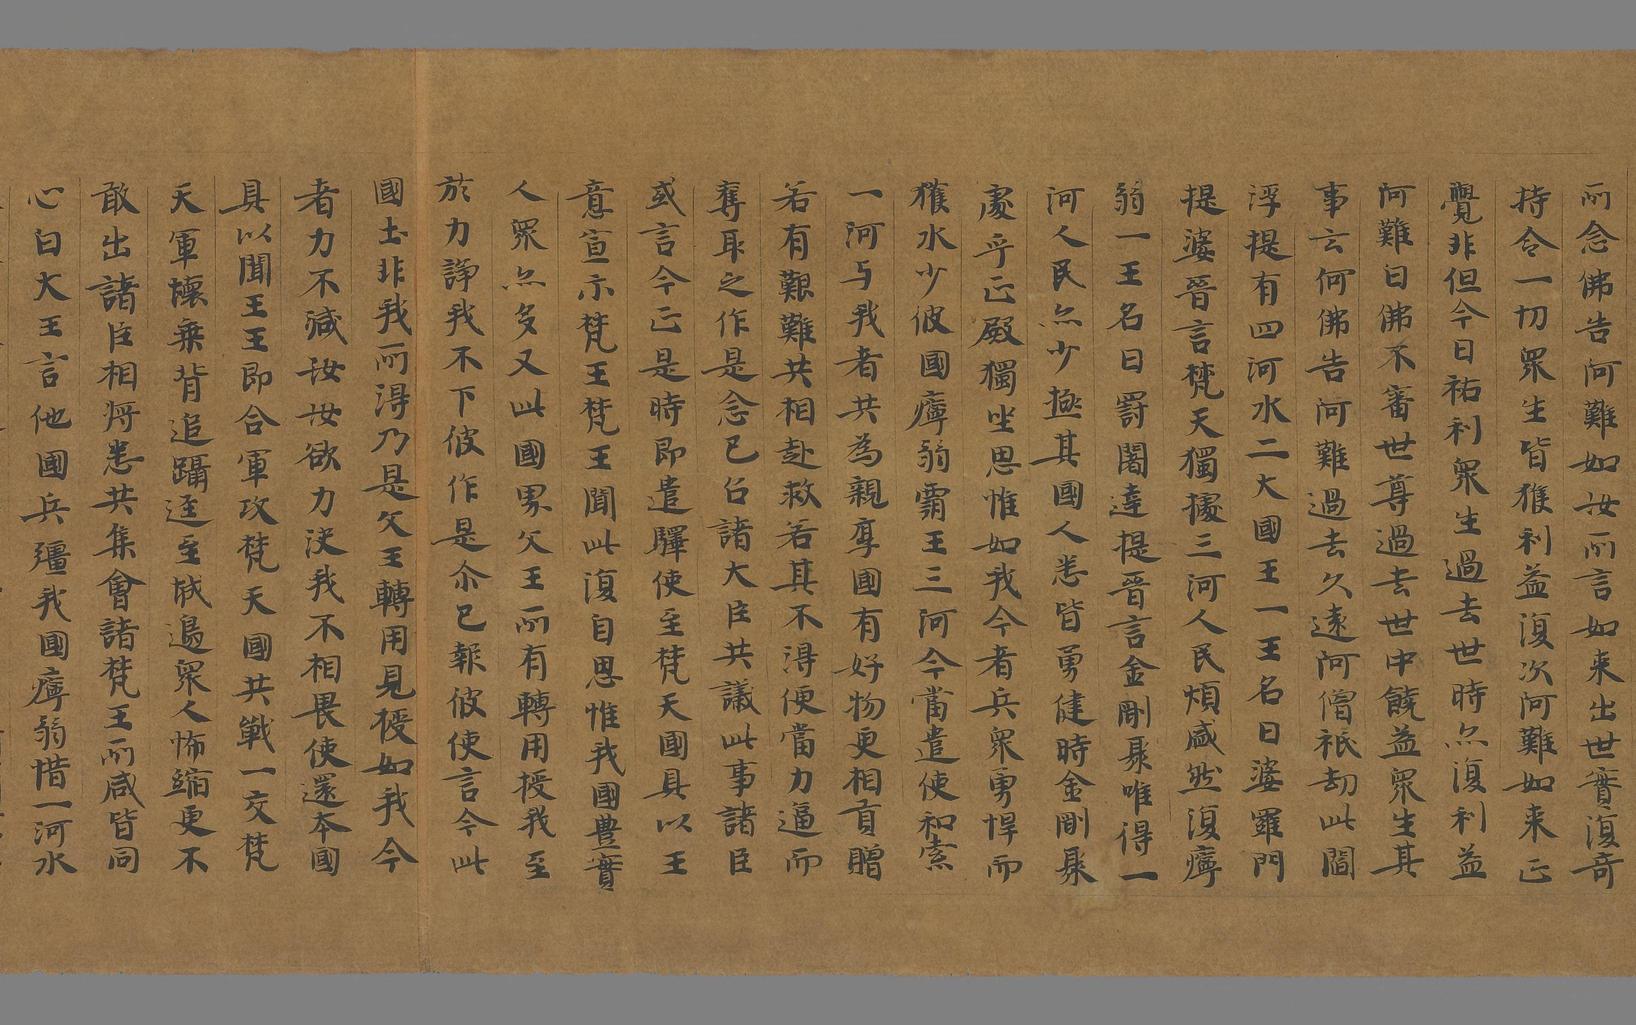 所念佛告阿難如汝所言如來出世實復奇
持令一切眾生皆獲利益復次阿難如來正
覺非但今日祐利眾生過去世時亦復利益
阿難曰佛不審世尊過去世中饒益眾生其
事云何佛告阿難過去久遠阿僧祇劫此閻
浮提有四河水二大國王一王名曰婆羅門
提婆晉言梵天獨據三河人民煩盛然復㾕
弱一王名曰罰闍達提晉言金剛聚唯得一
河人民亦少極其國人悉皆勇健時金剛聚
處乎正殿獨坐思惟如我今者兵眾勇悍而
獲水少彼國㾕弱霸王三河今當遣使和索
一河与我者共為親厚國有好物更相貢贈
若有艱難共相赴救若其不得便當力逼而
奪取之作是念已召諸大臣共議此事諸臣
咸言今正是時即遣驛使至梵天國具以王
意宣示梵王梵王聞此復自思惟我國豊實
人眾亦多又此國界父王所有轉用授我至
於力諍我不下彼作是尒已報彼使言今此
國土非我所得乃是父王轉用見授如我今
者力不減汝汝欲力決我不相畏使還本國
具以聞王王即合軍攻梵天國共戰一交梵
天軍壞乘背追躡逕至城邊眾人怖縮更不
敢出諸臣相將悉共集會諸梵王所咸皆同
心白大王言他國兵彊我國㾕弱惜一河水